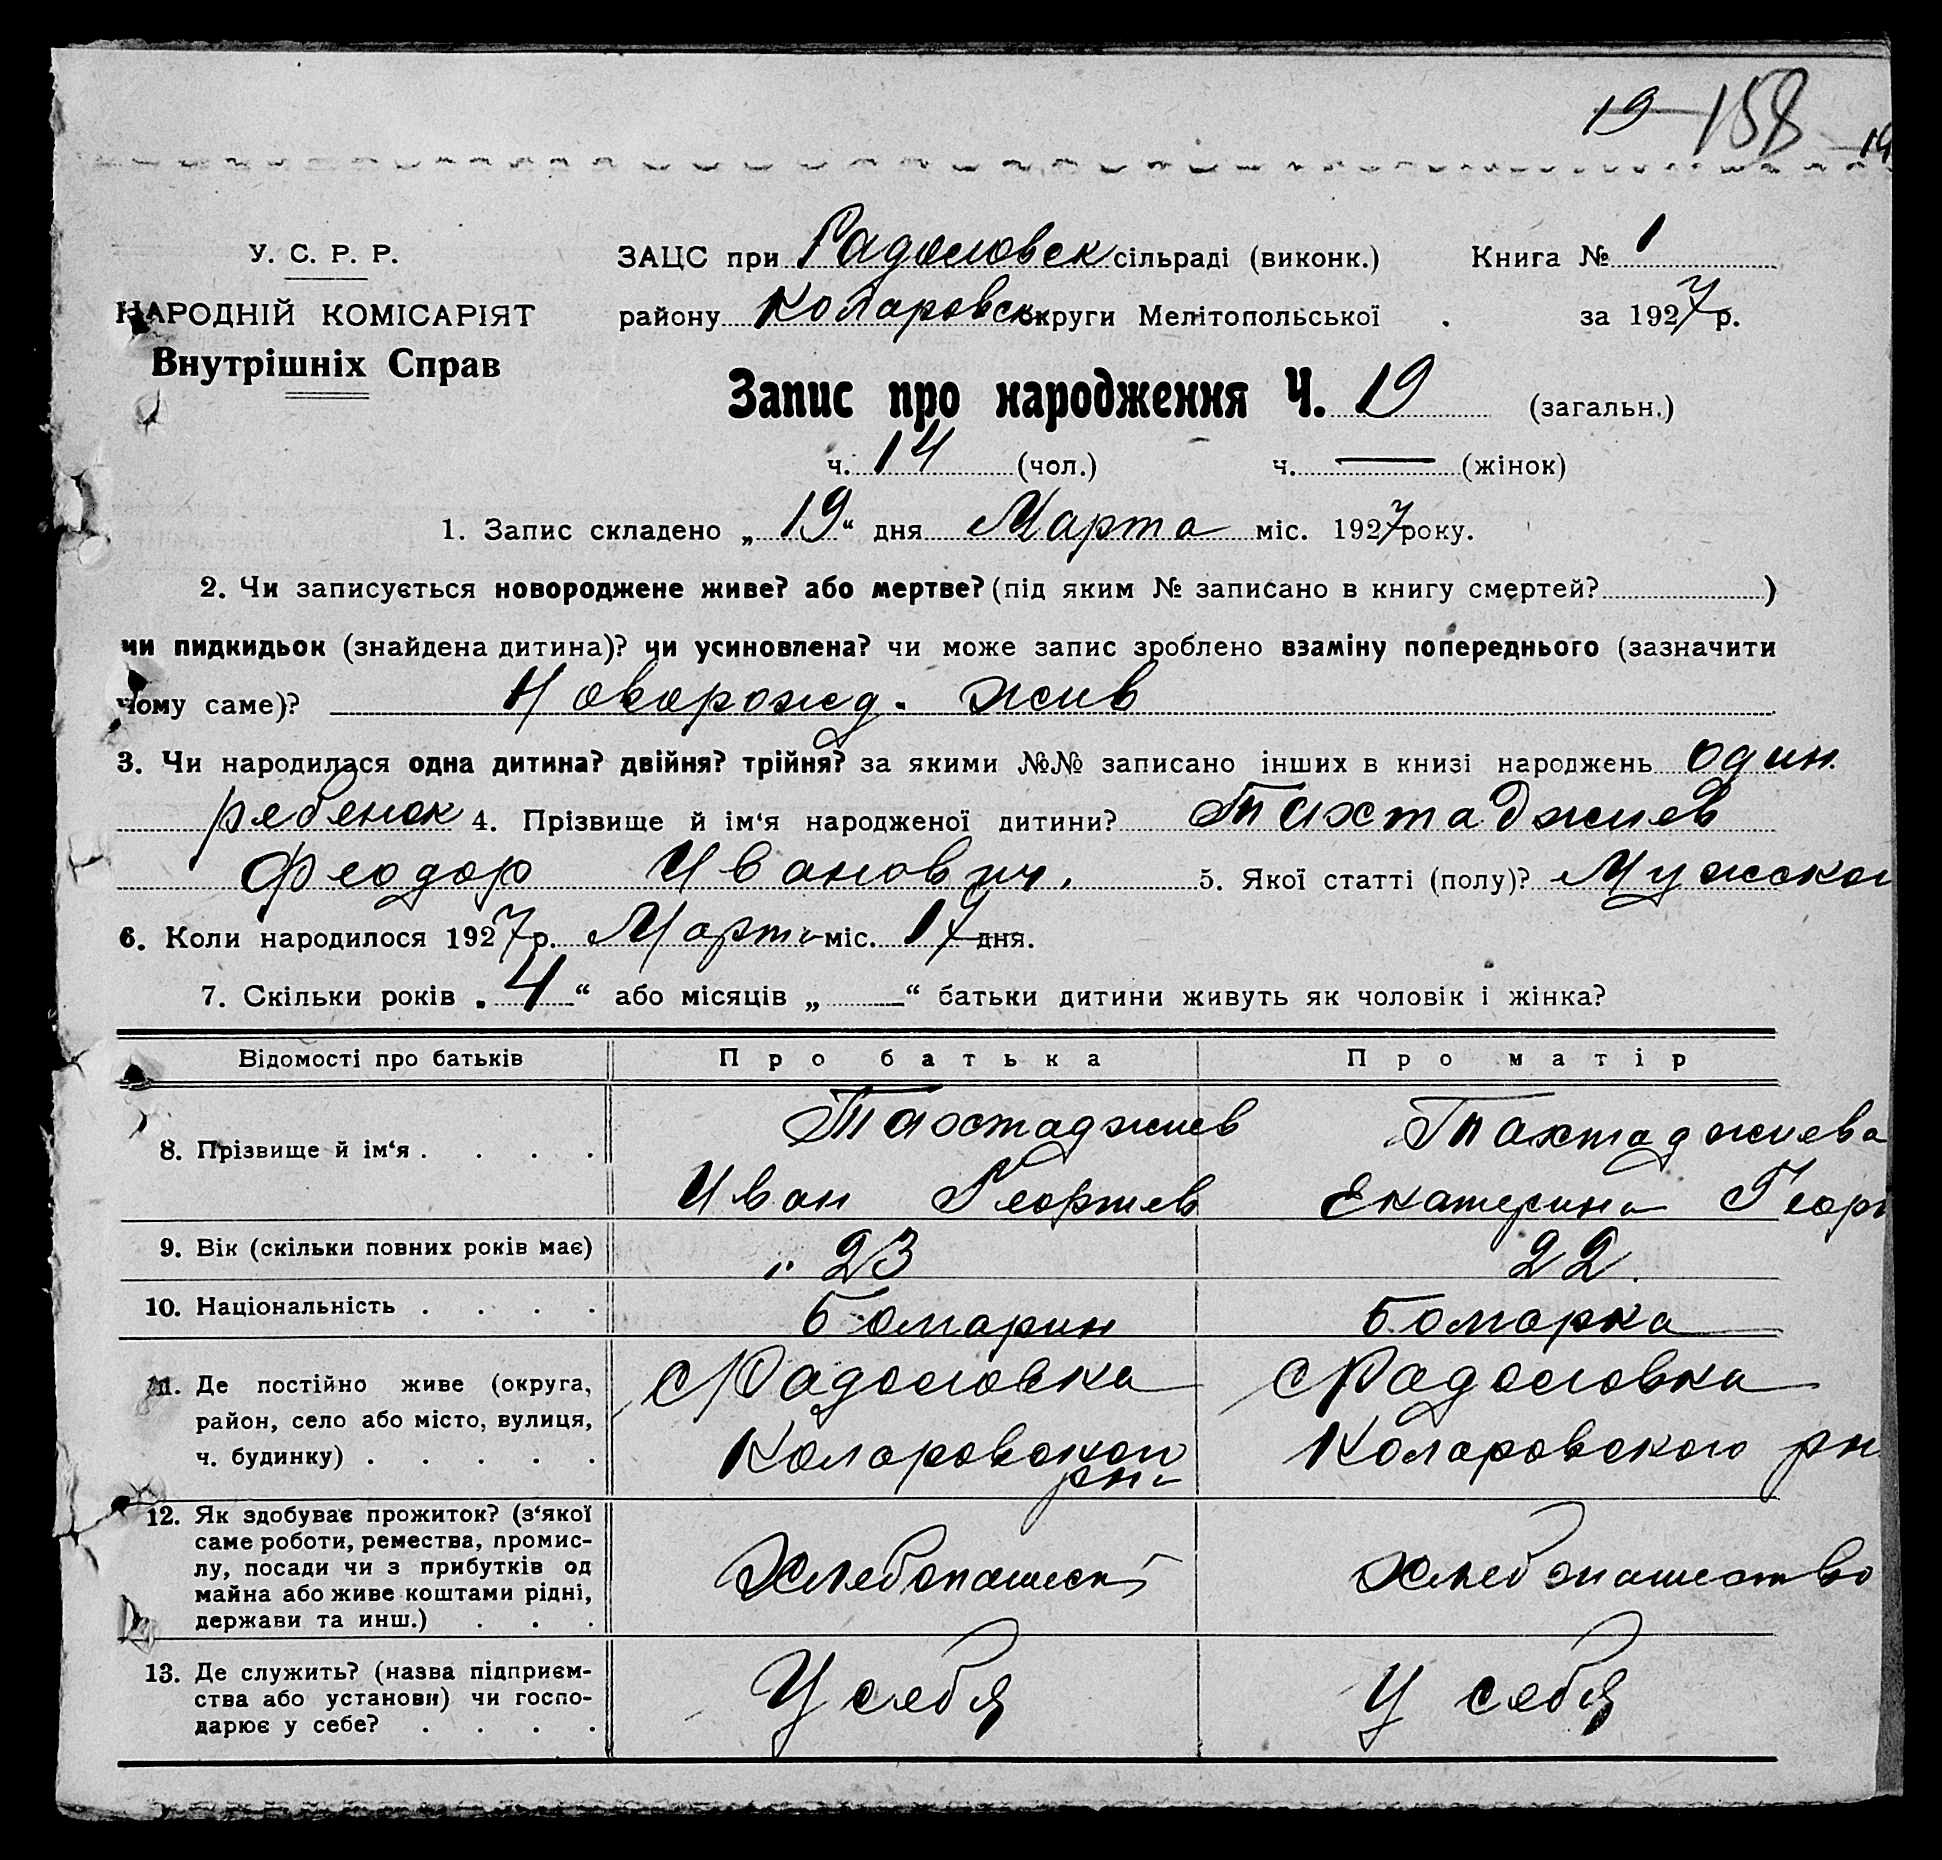 19 158 19
У. С. Р. Р.
НАРОДНІЙ КОМІСАРІЯТ
Внутрішніх Справ
ЗАЦС при Радоловск сільраді (виконк.) Книга № 1
району Коларовск округи Мелітопольської . за 1927 р.
Запис про народження Ч. 19 (загальн.)
ч. 14 (чол.) ч. — (жінок)
1. Запис складено „ 19 “ дня Марта міс. 1927 року.
2. Чи записується новороджене живе? або мертве? (під яким № записано в книгу смертей? )
чи пидкидьок (знайдена дитина)? чи усиновлена? чи може запис зроблено взаміну попереднього (зазначити
чому саме)?Новорожд. жив
3. Чи народилася одна дитина? двійня? трійня? за якими №№ записано інших в книзі народжень один
ребенок 4. Прізвище й ім‘я народженої дитини? Тахтаджиев
Феодор Иванович. 5. Якої статті (полу)? Мужской
6. Коли народилося 1927 р. Марта міс. 17 дня.
7. Скільки років „ 4 “ або місяців „ — “ батьки дитини живуть як чоловік і жінка?
Відомості про батьків Про батька Про матір
8. Прізвище й ім‘я . . . . Тахтаджиев Тахтаджиева
Иван Георгиев Екатерина Георг
9. Вік (скільки повних років має) 23 22.
10. Національність . . . . Болгарин Болгарка
11. Де постійно живе (округа, с Радоловка с Радоловка
район, село або місто, вулиця,
ч. будинку) . . . . . Коларовского рна Коларовского рн
12. Як здобуває прожиток? (з‘якої
саме роботи, ремества, промис-
лу, посади чи з прибутків од
майна або живе коштами рідні, Хлебопашест Хлебопашество
держави та инш.) . . .
13. Де служить? (назва підприєм-
ства або установи) чи госпо- У себя У себя
дарює у себе? . . . .